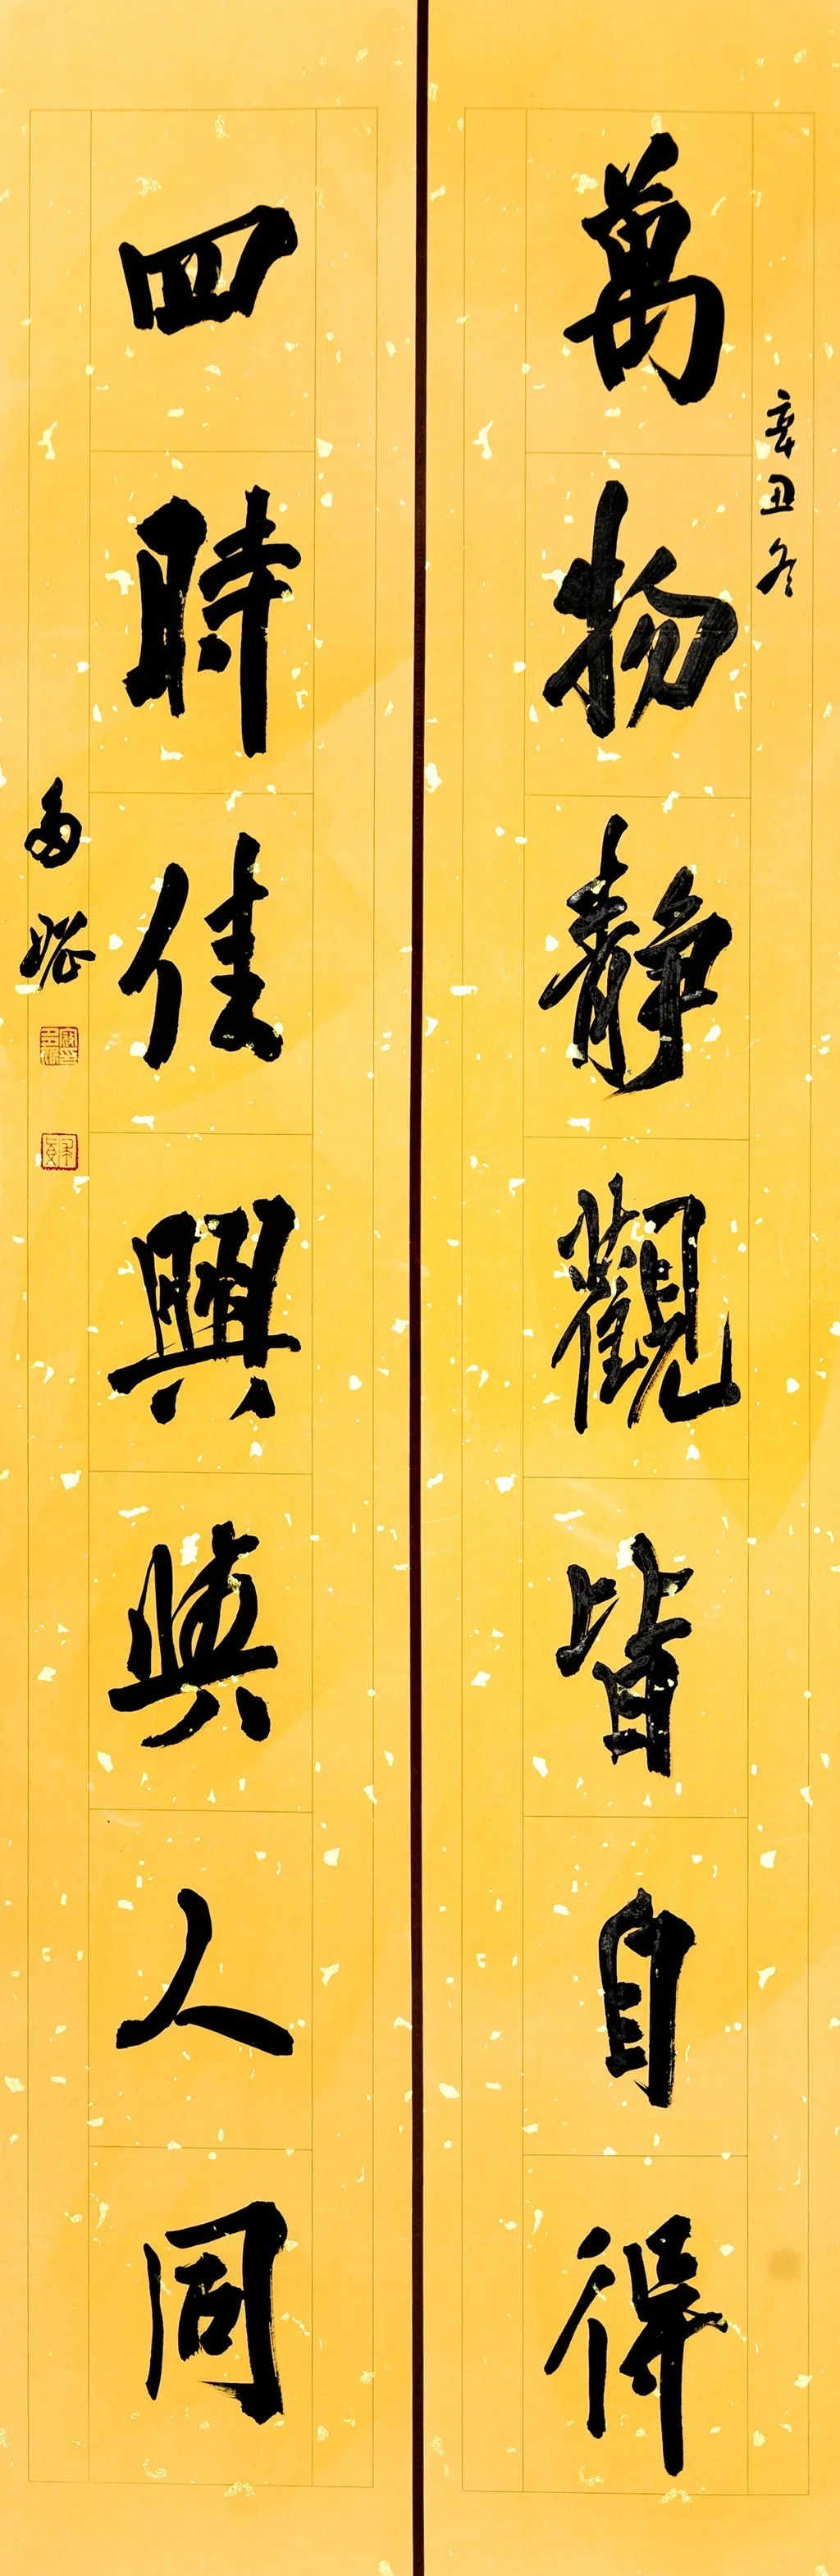 萬物靜觀皆自得
辛丑冬
四時佳興與人同